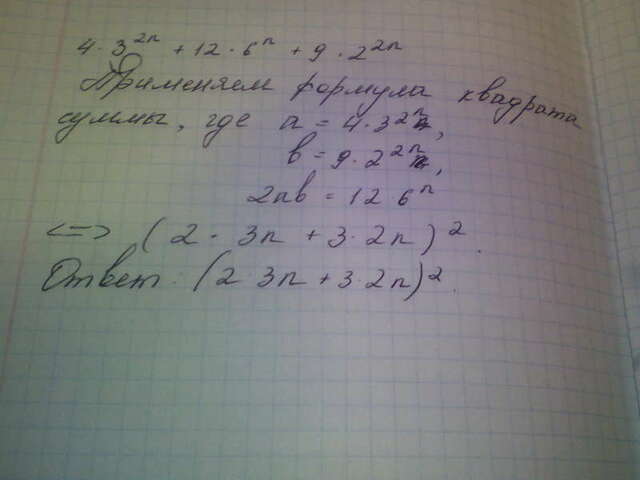 4 · 3^{2n} + 12 · 6^n + 9 · 2^{2n}
Применяем формула квадрата
суммы, где a = 4 · 3^{2n},
b = 9 · 2^{2n},
2ab = 12 6^n
<=> (2 · 3n + 3 · 2n)^2.
Ответ: (2 3n + 3 · 2n)^2.